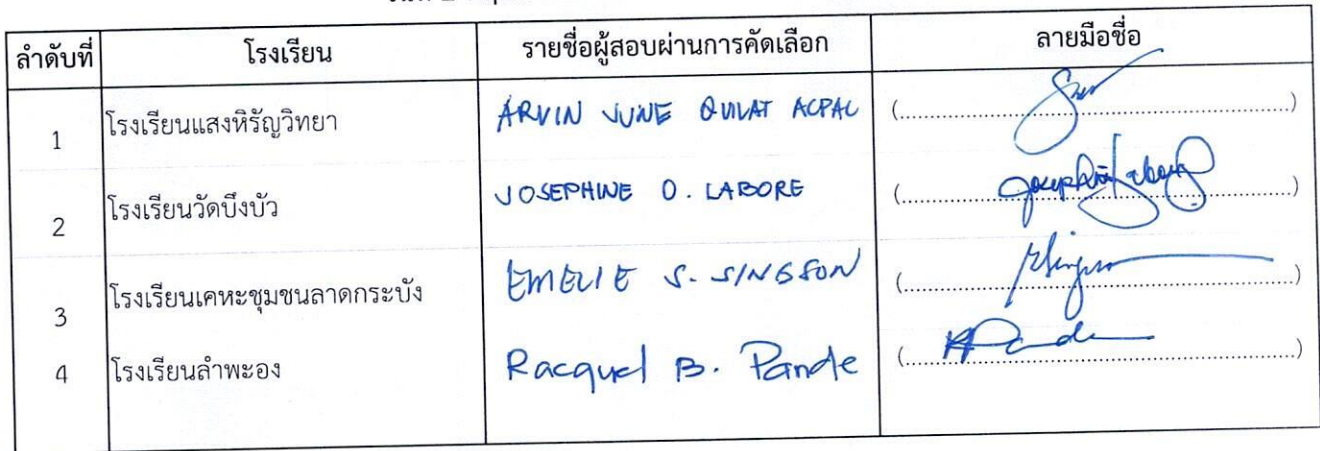 ลำดับที่ โรงเรียน รายชื่อผู้สอบผ่านการคัดเลือก ลายมือชื่อ
1 โรงเรียนแสงหิรัญวิทยา ARVIN JUNE QUILAT ACPAL (..........)
2 โรงเรียนวัดบึงบัว JOSEPHINE O. LABORE (..........)
3 โรงเรียนเคหะชุมชนลาดกระบัง EMELIE S. SINGSON (..........)
4 โรงเรียนลำพะอง Racquel B. Pande (..........)